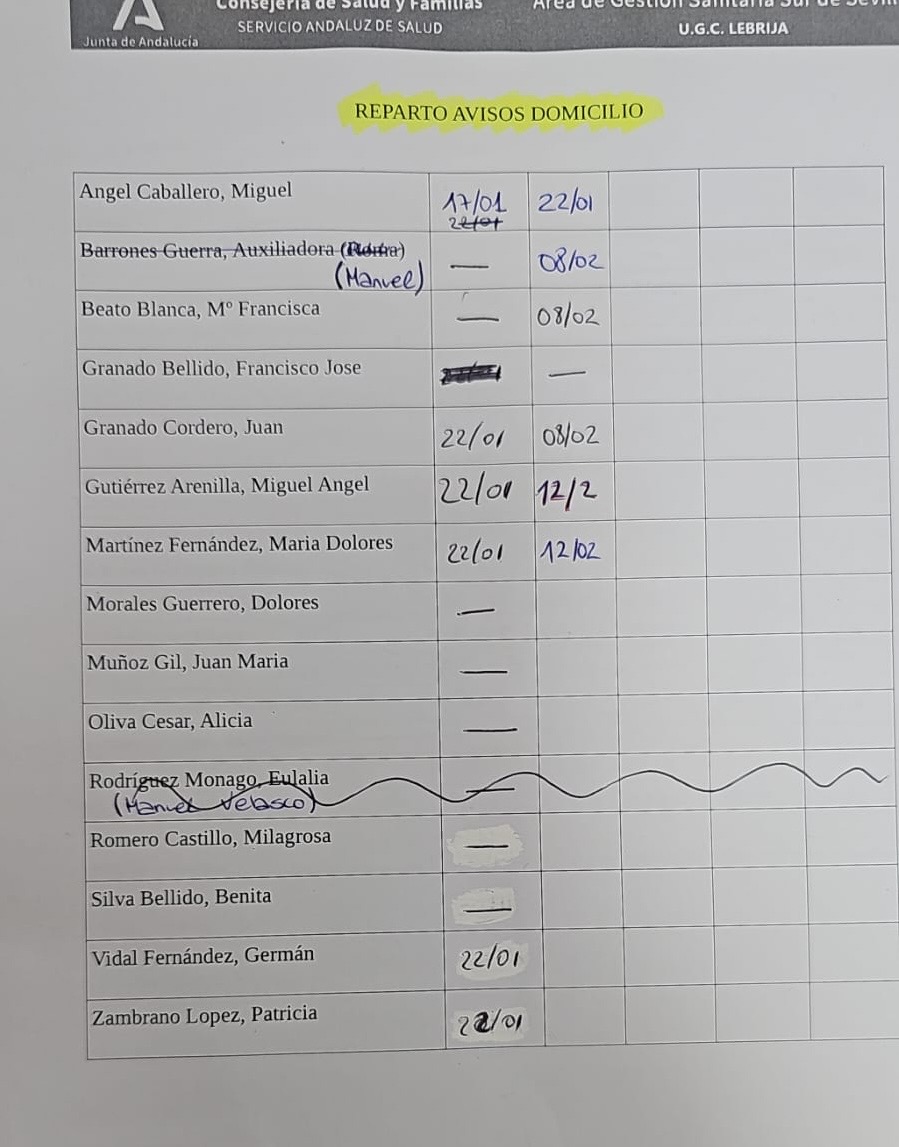 Consejería de Salud y Familias
Área de Gestión Sanitaria Sur de Sevill
Junta de Andalucía
SERVICIO ANDALUZ DE SALUD
U.G.C. LEBRIJA
REPARTO AVISOS DOMICILIO
Angel Caballero, Miguel 17/01 22/01
22/01
Barrones Guerra, Auxiliadora
(Manuel) — 08/02
Beato Blanca, Mº Francisca — 08/02
Granado Bellido, Francisco Jose —
Granado Cordero, Juan 22/01 08/02
Gutiérrez Arenilla, Miguel Angel 22/01 12/2
Martínez Fernández, Maria Dolores 22/01 12/02
Morales Guerrero, Dolores —
Muñoz Gil, Juan Maria —
Oliva Cesar, Alicia —
Rodríguez Monago, Eulalia —
(Manuel Velasco)
Romero Castillo, Milagrosa —
Silva Bellido, Benita —
Vidal Fernández, Germán 22/01
Zambrano Lopez, Patricia 22/01